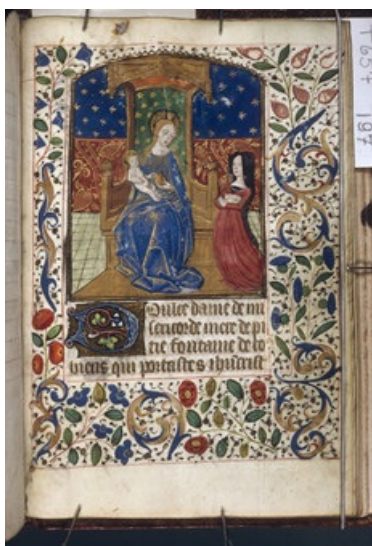 Doulce dame de mi
sericorde mere de pi
tie fontaine de to
biens qui portastes ihucrist
197